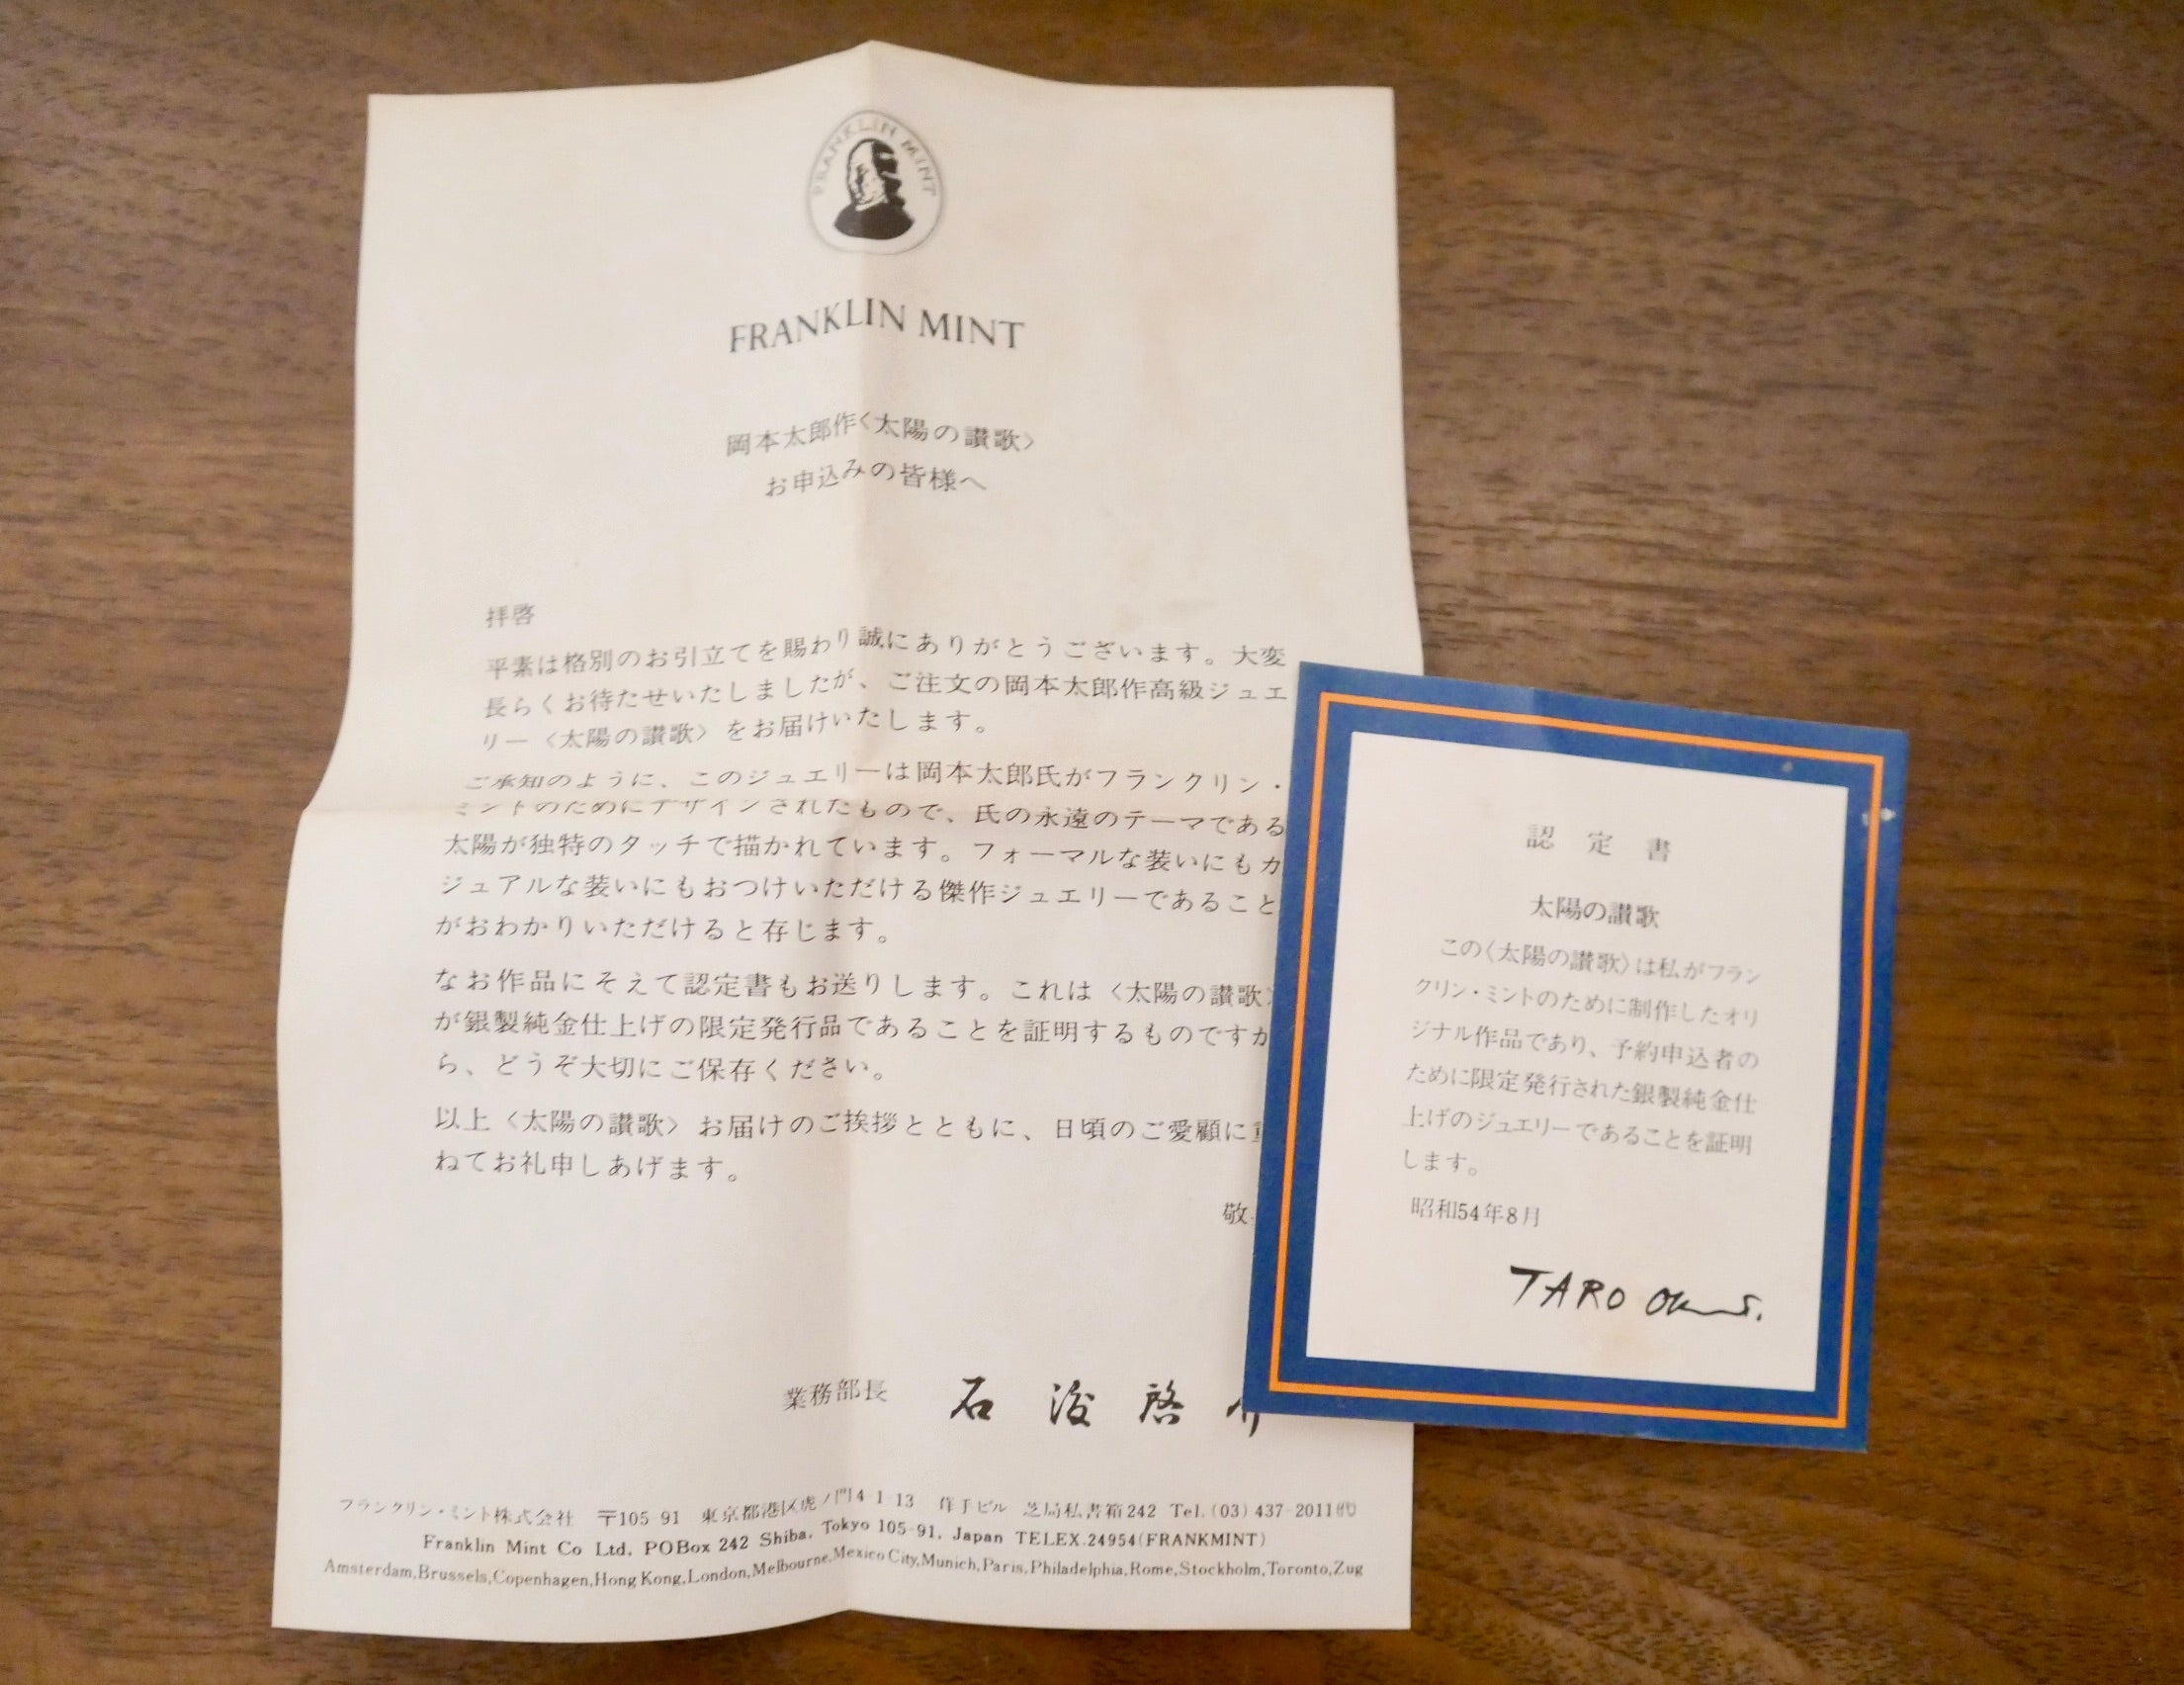 FRANKLIN MINT
FRANKLIN MINT
岡本太郎作〈太陽の讃歌〉
お申込みの皆様へ
拝啓
平素は格別のお引立てを賜わり誠にありがとうございます。大変
長らくお待たせいたしましたが、ご注文の岡本太郎作高級ジュエ
リー〈太陽の讃歌〉をお届けいたします。
ご承知のように、このジュエリーは岡本太郎氏がフランクリン・
ミントのためにデザインされたもので、氏の永遠のテーマである
太陽が独特のタッチで描かれています。フォーマルな装いにもカ
ジュアルな装いにもおつけいただける傑作ジュエリーであること
がおわかりいただけると存じます。
なお作品にそえて認定書もお送りします。これは〈太陽の讃歌〉
が銀製純金仕上げの限定発行品であることを証明するものですか
ら、どうぞ大切にご保存ください。
以上〈太陽の讃歌〉お届けのご挨拶とともに、日頃のご愛顧に重
ねてお礼申しあげます。
敬
業務部長 石 啓
フランクリン・ミント株式会社 〒105-91 東京都港区虎ノ門4-1-13 ビル 芝局私書箱242 Tel.(03)437-2011㈹
Franklin Mint Co Ltd. POBox 242 Shiba, Tokyo 105-91, Japan TELEX.24954(FRANKMINT)
Amsterdam,Brussels,Copenhagen,Hong Kong,London,Melbourne,Mexico City,Munich,Paris,Philadelphia,Rome,Stockholm,Toronto,Zug
認定書
太陽の讃歌
この〈太陽の讃歌〉は私がフラン
クリン・ミントのために制作したオリ
ジナル作品であり、予約申込者の
ために限定発行された銀製純金仕
上げのジュエリーであることを証明
します。
昭和54年8月
TARO